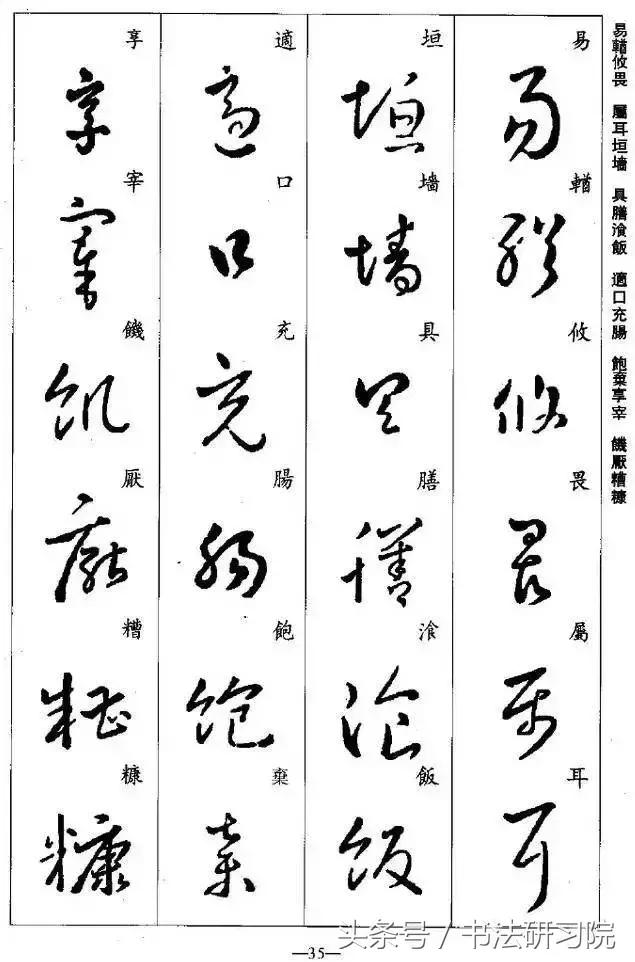 易輶攸畏 屬耳垣墻 具膳湌飯 適口充腸 飽棄享宰 饑厭糟糠
易輶攸畏屬耳
易輶攸畏屬耳
垣墻具膳湌飯
垣墻具膳湌飯
適口充腸飽棄
適口充腸飽棄
享宰饑厭糟糠
享宰饑厭糟糠
—35—
头条号/书法研习院